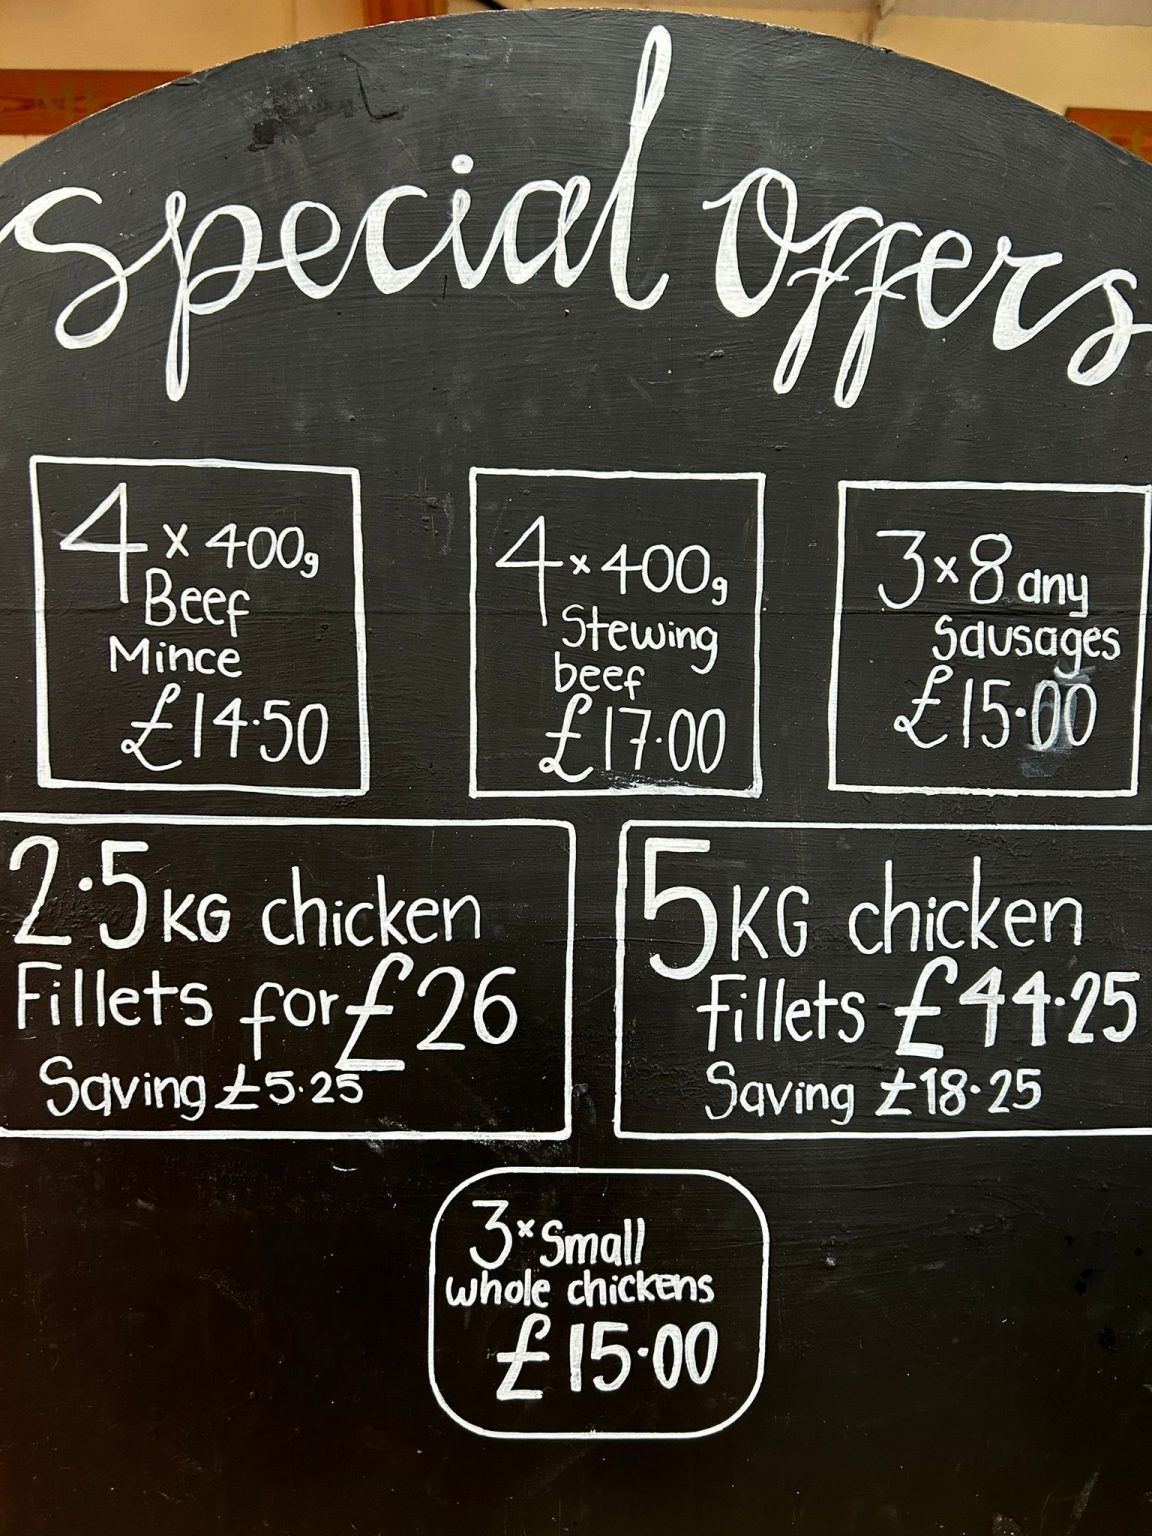 Special Offers
4 x 400g
Beef
Mince
£14.50
4 x 400g
Stewing
beef
£17.00
3 x 8 any
Sausages
£15.00
2.5KG chicken
Fillets for £26
Saving £5.25
5KG chicken
fillets £44.25
Saving £18.25
3 x Small
whole chickens
£15.00